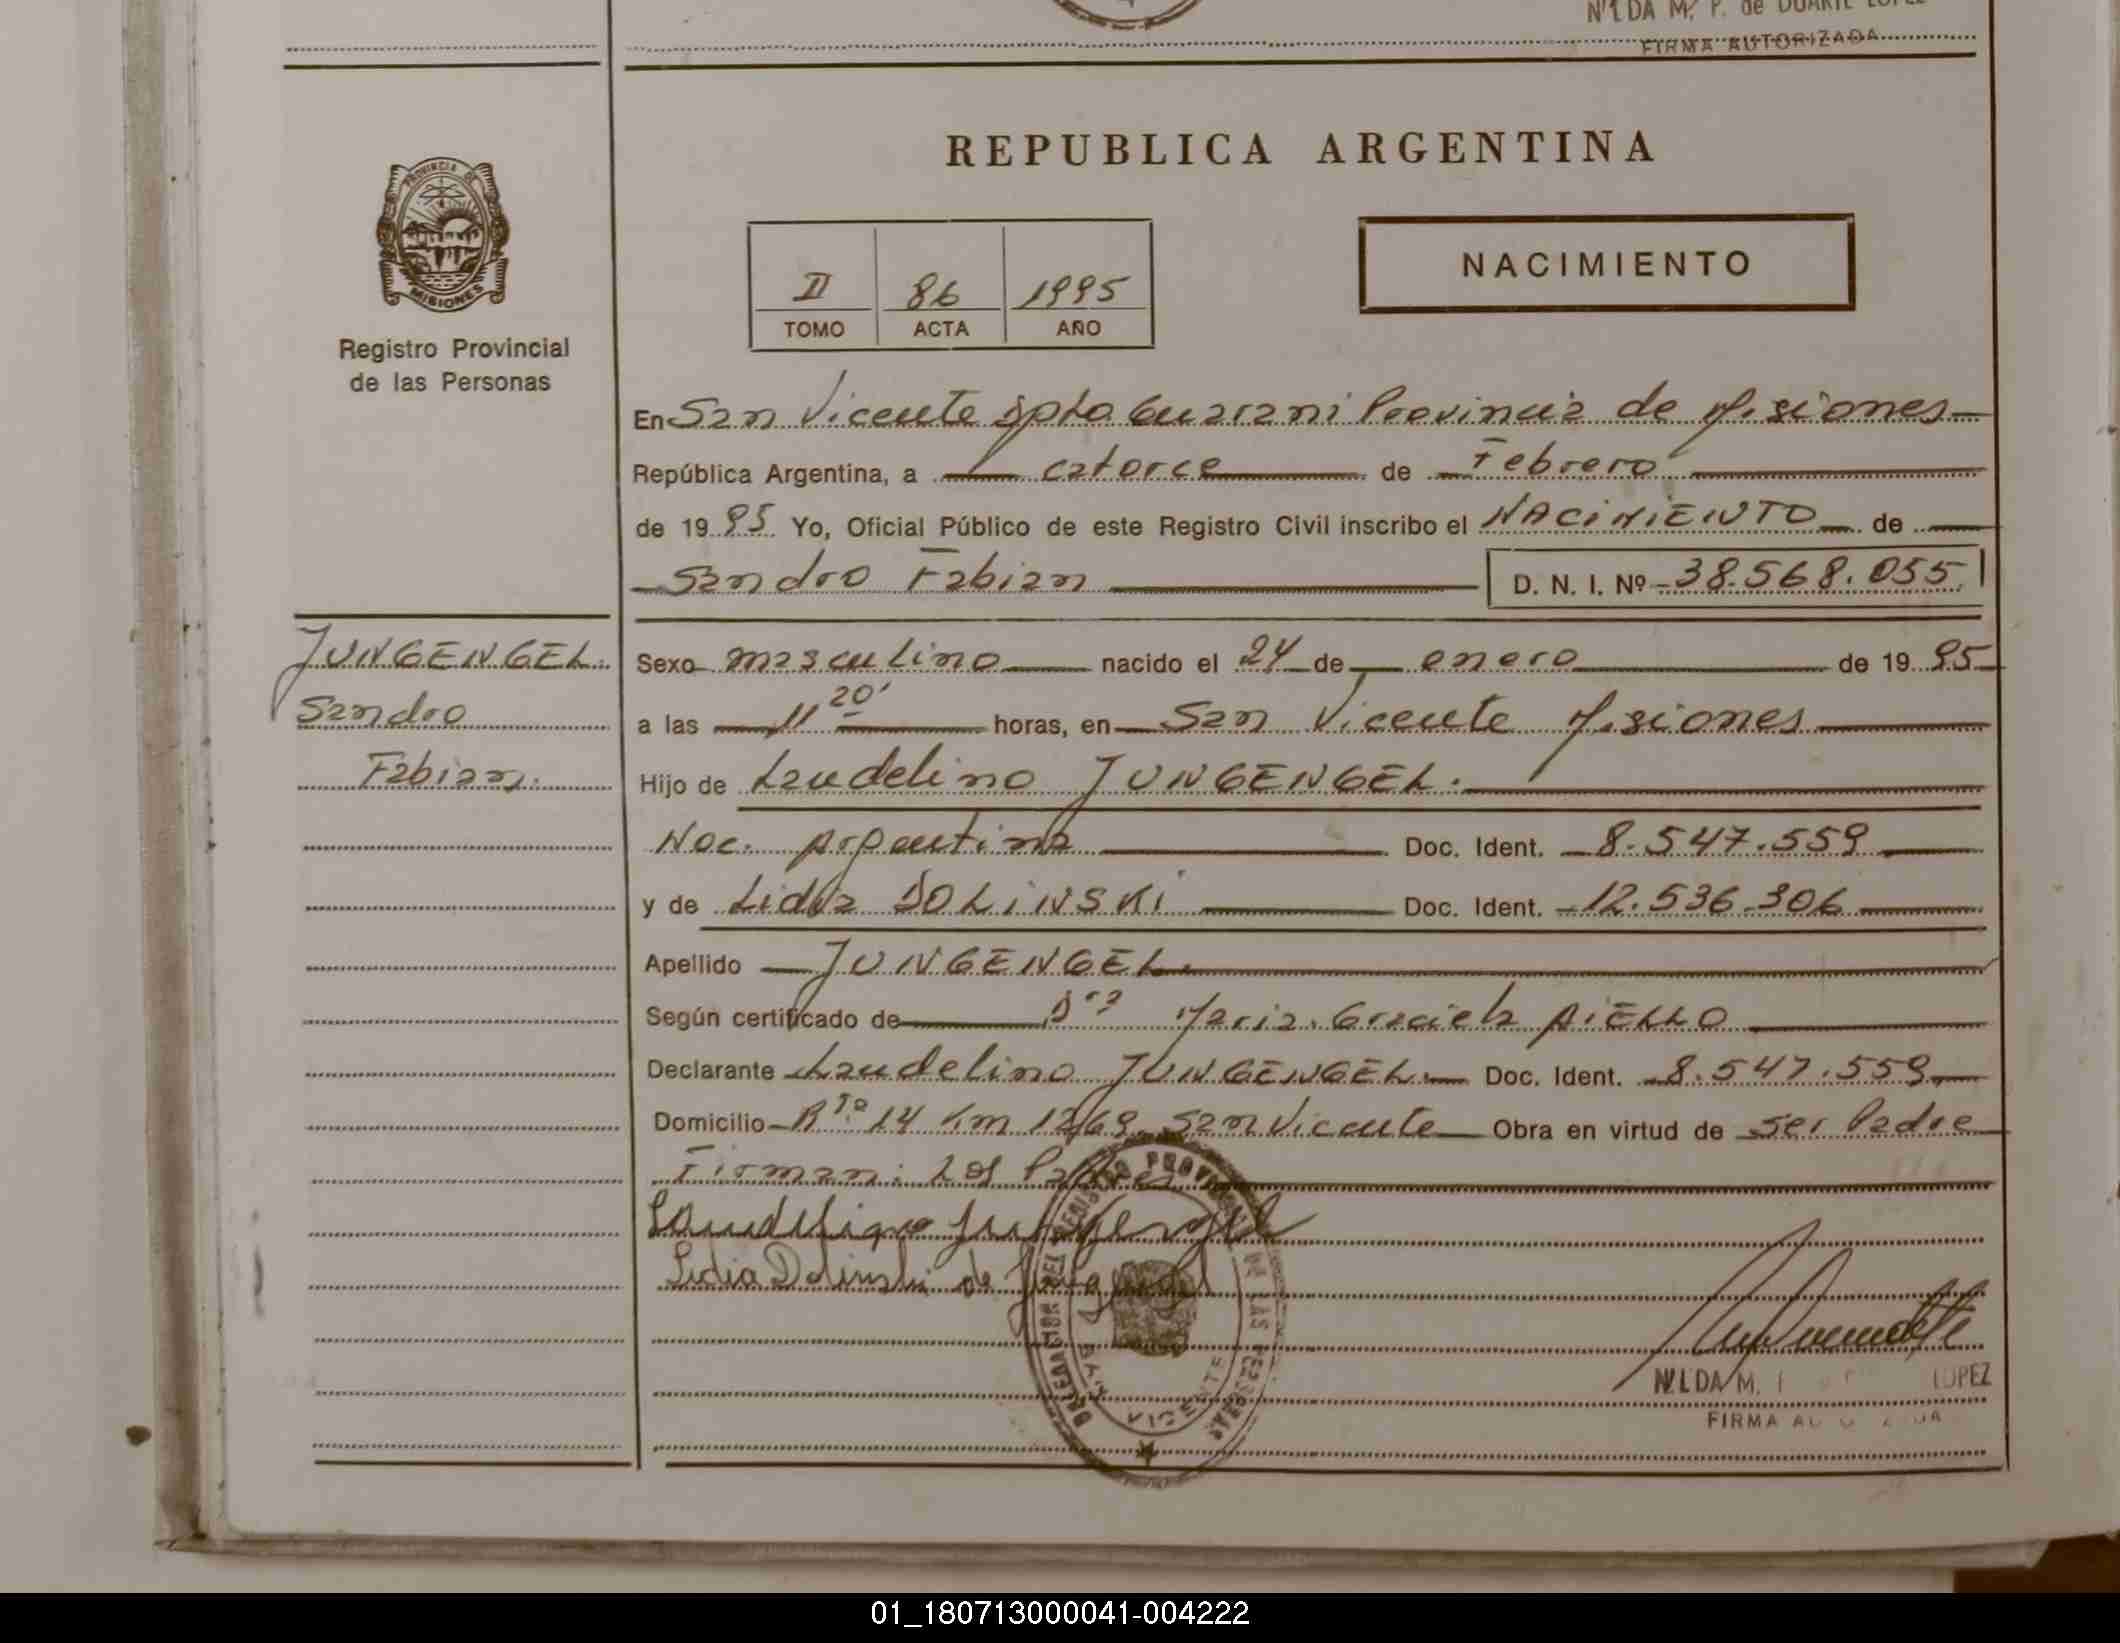 NILDA M. P. de DUARTE LOPEZ
FIRMA AUTORIZADA
REPUBLICA ARGENTINA
PROVINCIA DE
MISIONES
Registro Provincial
de las Personas
II 86 1995
TOMO ACTA AÑO
NACIMIENTO
En San Vicente Dpto Guarani Provincia de Misiones
República Argentina, a catorce de Febrero
de 1995 Yo, Oficial Público de este Registro Civil inscribo el NACIMIENTO de
Sandro Fabian D. N. I. Nº 38.568.055
JUNGENGEL.
Sandro
Fabian.
Sexo masculino nacido el 24 de enero de 1995
a las 11 20' horas, en San Vicente Misiones
Hijo de Laudelino JUNGENGEL.
Nac. Argentina Doc. Ident. 8.547.559
y de Lidia DOLINSKI Doc. Ident. 12.536.306
Apellido JUNGENGEL.
Según certificado de Dra Maria Graciela AIELLO
Declarante Laudelino JUNGENGEL. Doc. Ident. 8.547.559
Domicilio Rta 14 Km 1269 San Vicente Obra en virtud de ser Padre
Firman: Los Padres
Laudelino Jungengel
Lidia Dolinski de Jungengel
DELEGACION DEL REGISTRO PROVINCIAL DE LAS PERSONAS
SAN VICENTE
NILDA M. LOPEZ
FIRMA
01_180713000041-004222